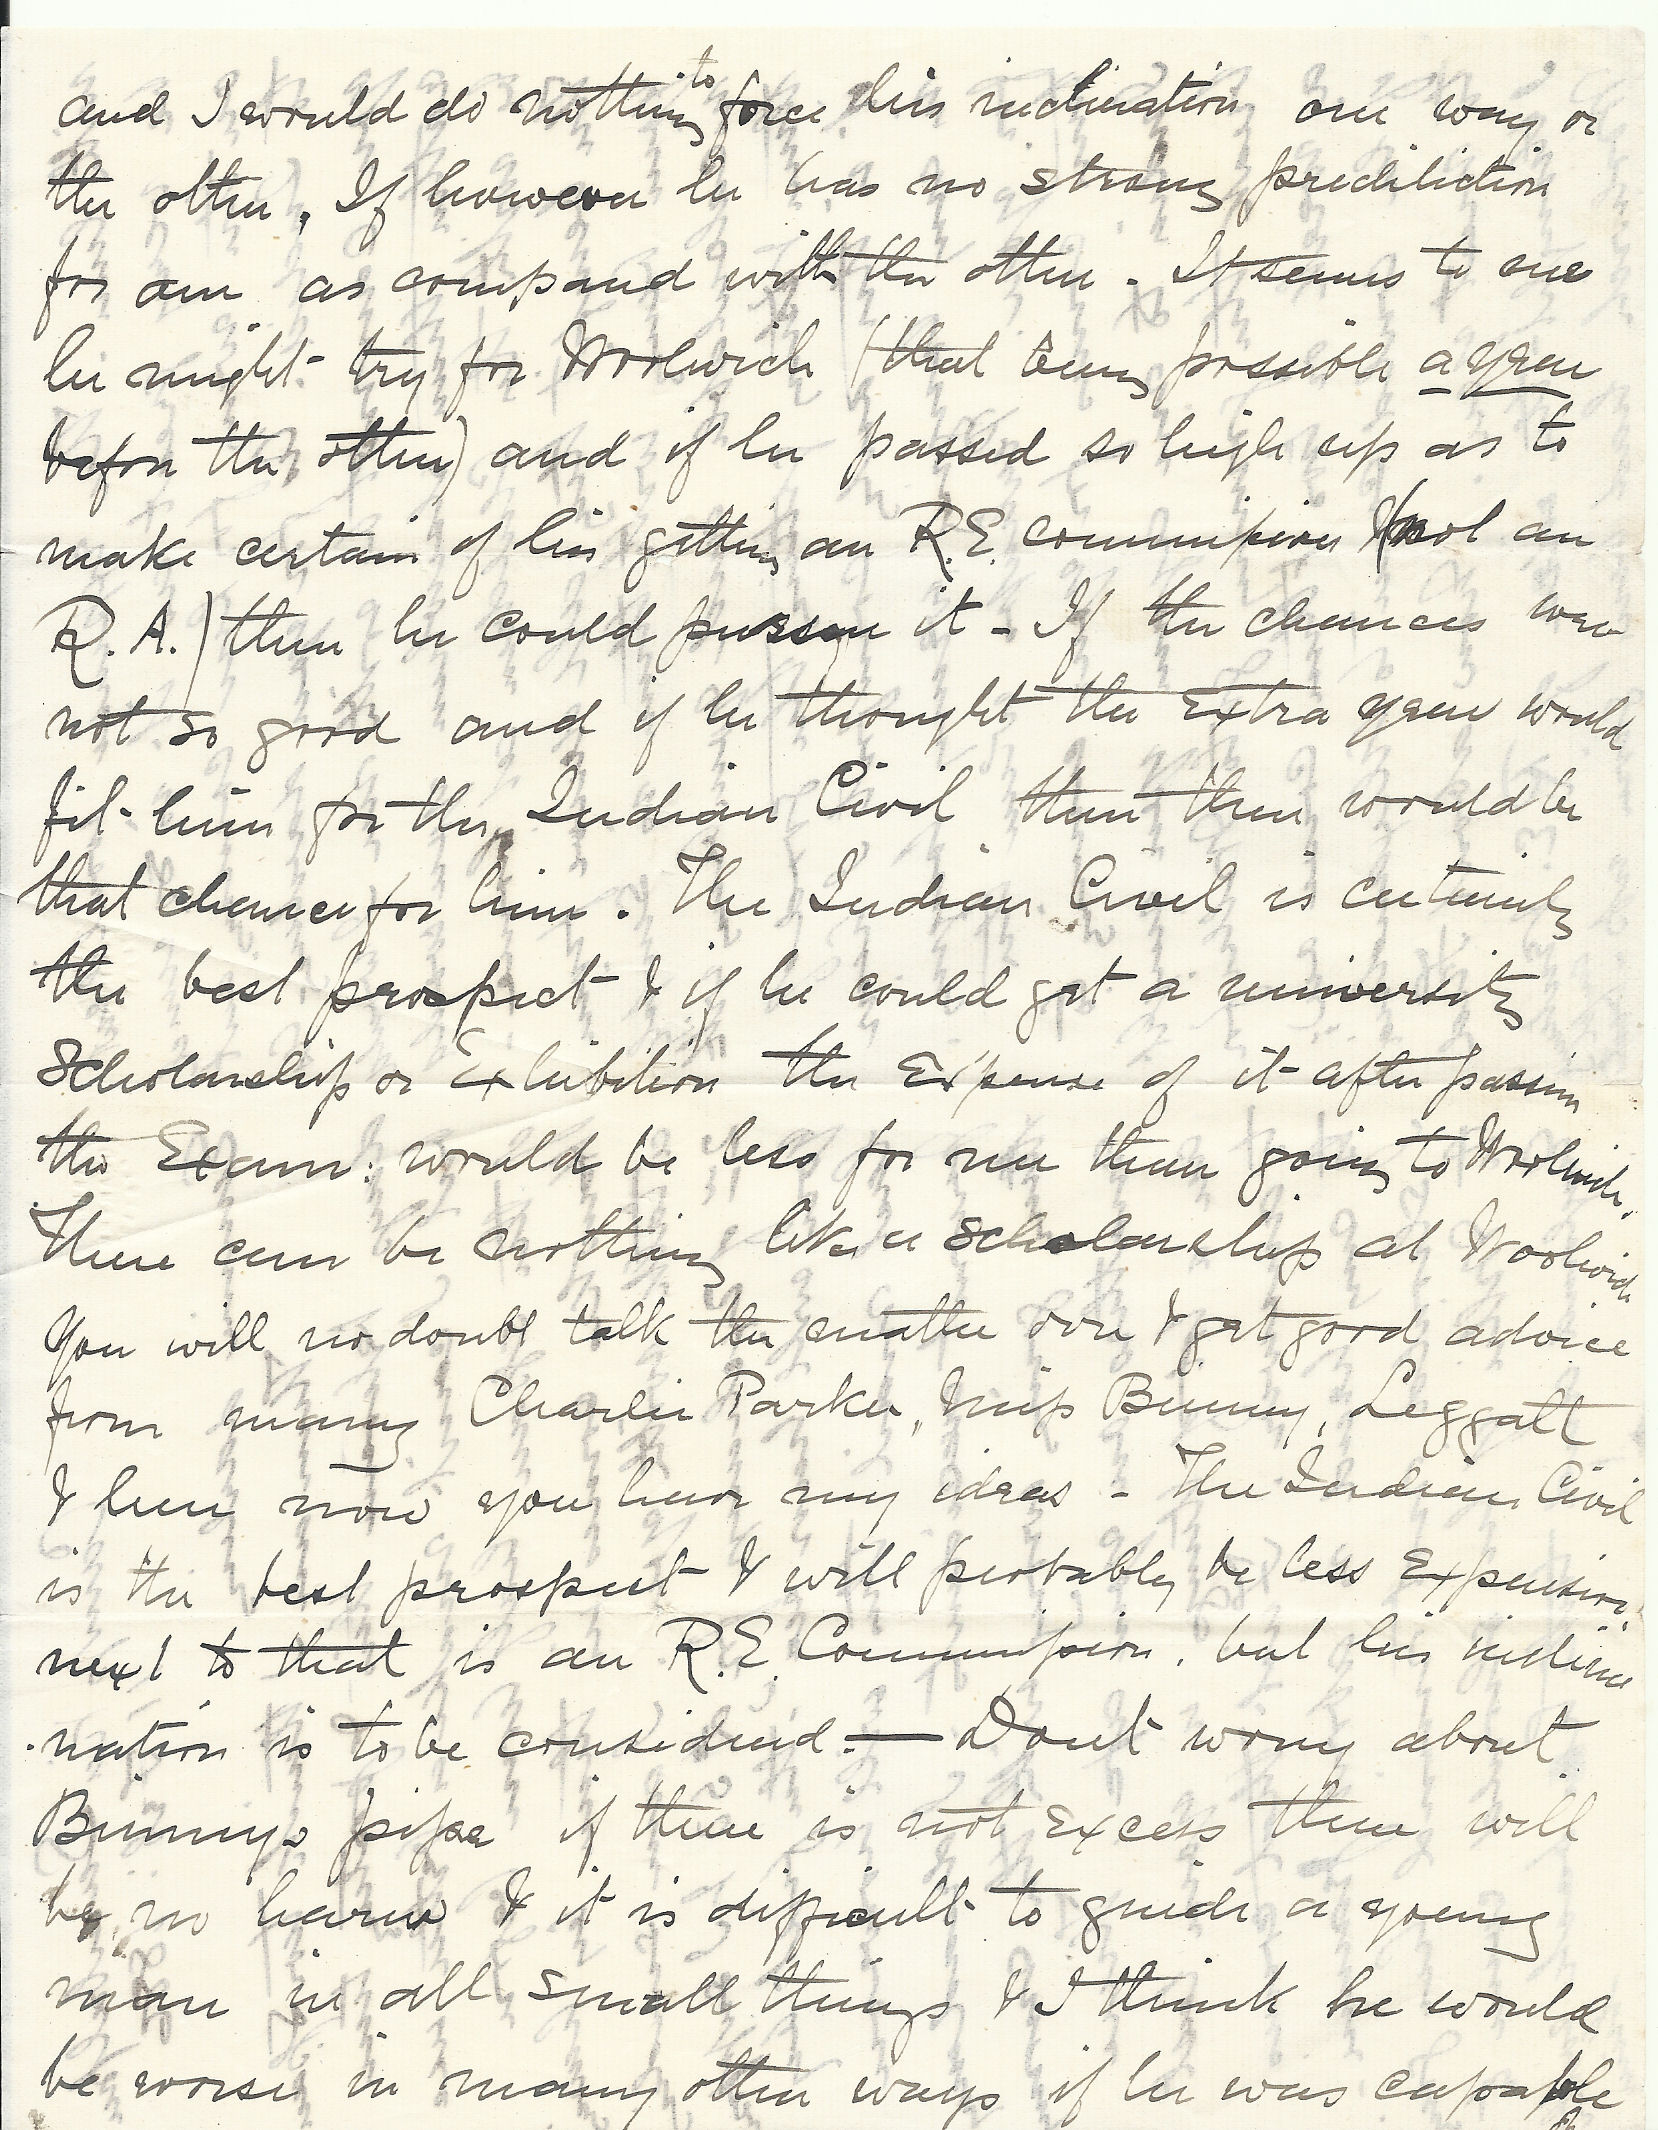 and I would do nothing to force his inclination one way or
the other. If however he has no strong prediliction
for one as compared with the other. It seems to me
he might try for Woolwich (that being possible a year
before the other) and if he passed so high up as to
make certain of his getting an R.E. commission (not an
R.A.) then he could pursue it - If the chances were
not so good and if he thought the extra year would
fit him for the Indian Civil then there would be
that chance for him. The Indian Civil is certainly
the best prospect & if he could get a university
Scholarship or Exhibition the expense of it after passing
the Exam: would be less for me than going to Woolwich.
There can be nothing like a scholarship at Woolwich
You will no doubt talk the matter over & get good advice
from many Charlie Parker, Miss Binny, Leggatt
& here now you have my ideas - The Indian Civil
is the best prospect & will probably be less expensive.
next to that is an R.E. Commission. but his incli
nation is to be considered. — Dont worry about
Binnys pipe if there is not excess there will
be no harm & it is difficult to guide a young
man in all small things & I think he would
be worse in many other ways if he was capable